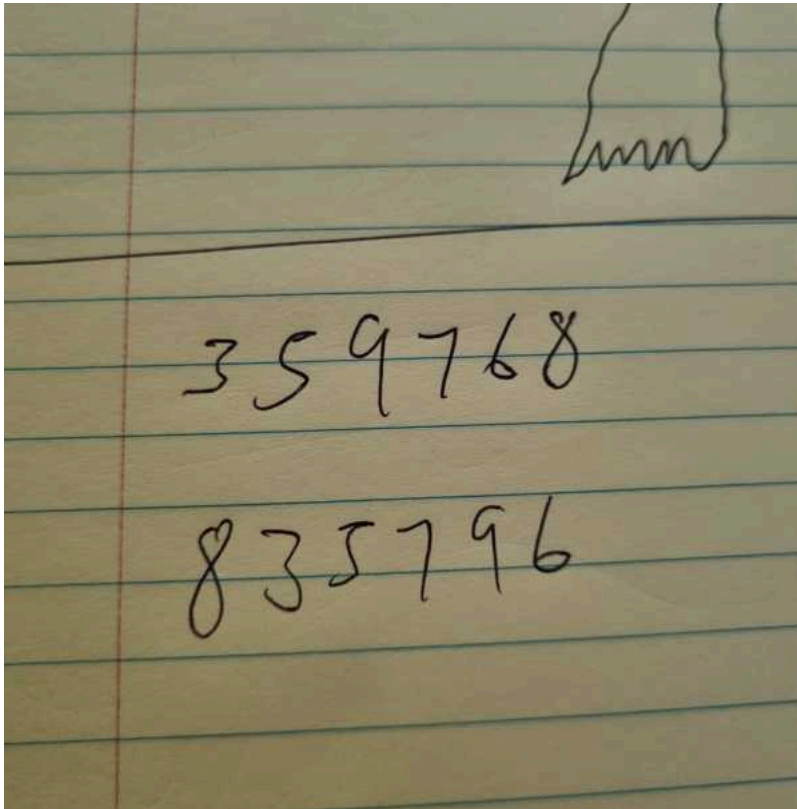 359768
835796